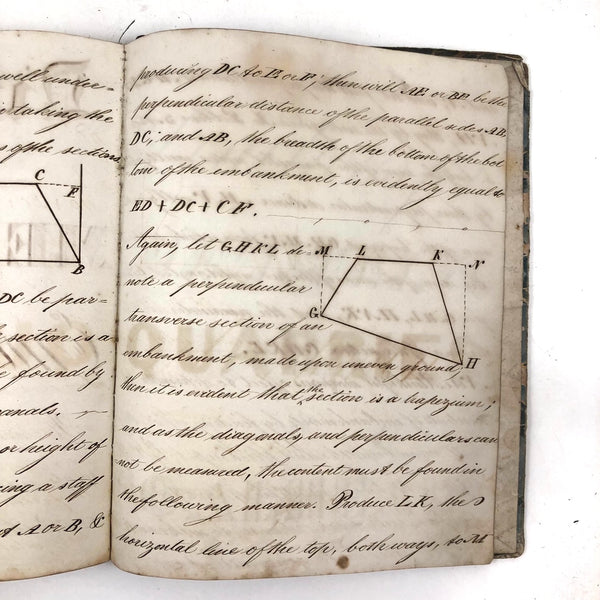 well under=
taking the
s of the sections
C
F
B
DC be par=
section is a
e found by
onals.
or height of
ing a staff
t A or B, &
producing DC to E or F; then will AE or BF be the
perpendicular distance of the parallel sides AB
DC; and AB, the breadth of the bottom of the bot
tom of the embankment, is evidently equal to
ED + DC + CF.
Again, let GHKL de=
note a perpendicular
transverse section of an
embankment, made upon uneven ground,
then it is evident that the section is a trapezium;
and as the diagonals and perpendiculars can
not be measured, the content must be found in
the following manner. Produce LK, the
horizontal line of the top, both ways, to M
M L K N
G
H